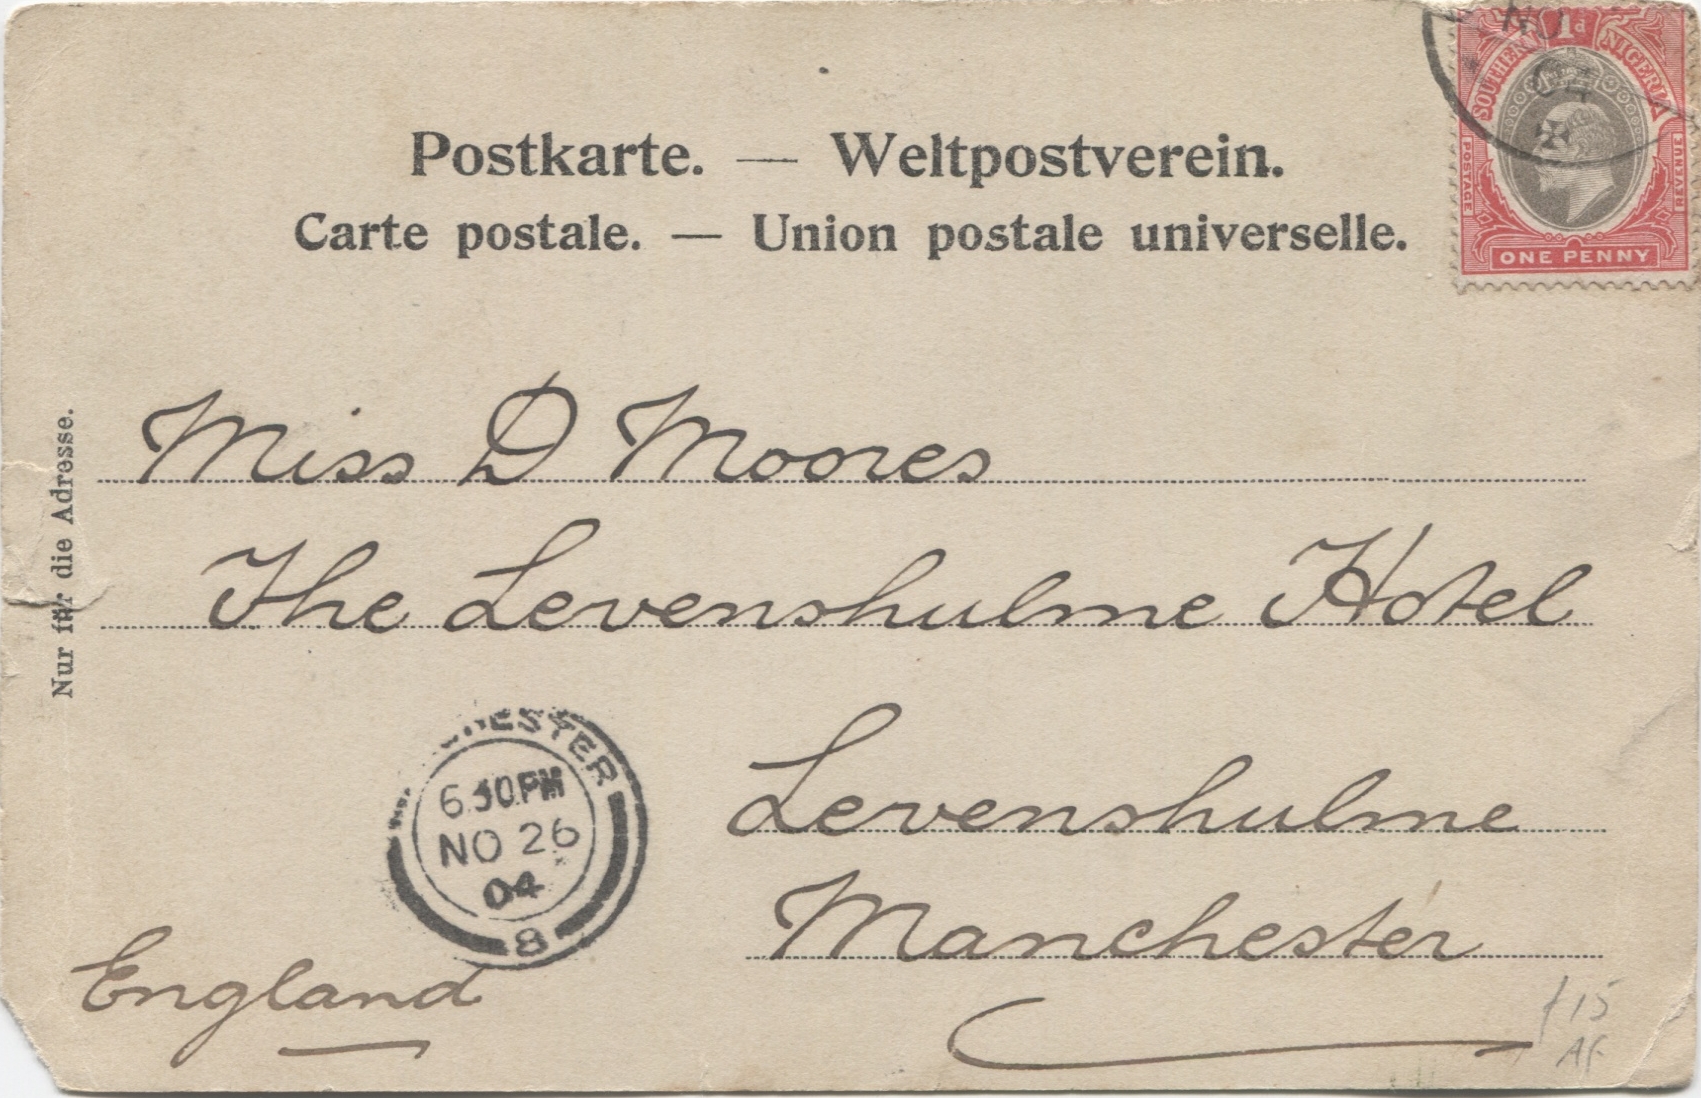 Postkarte. — Weltpostverein.
Carte postale. — Union postale universelle.
NO
04
1d
SOUTHERN NIGERIA
POSTAGE
REVENUE
ONE PENNY
Nur für die Adresse.
Miss D Moores
The Levenshulme Hotel
Levenshulme
Manchester
England
CHESTER
6.30PM
NO 26
04
8
£15
AF